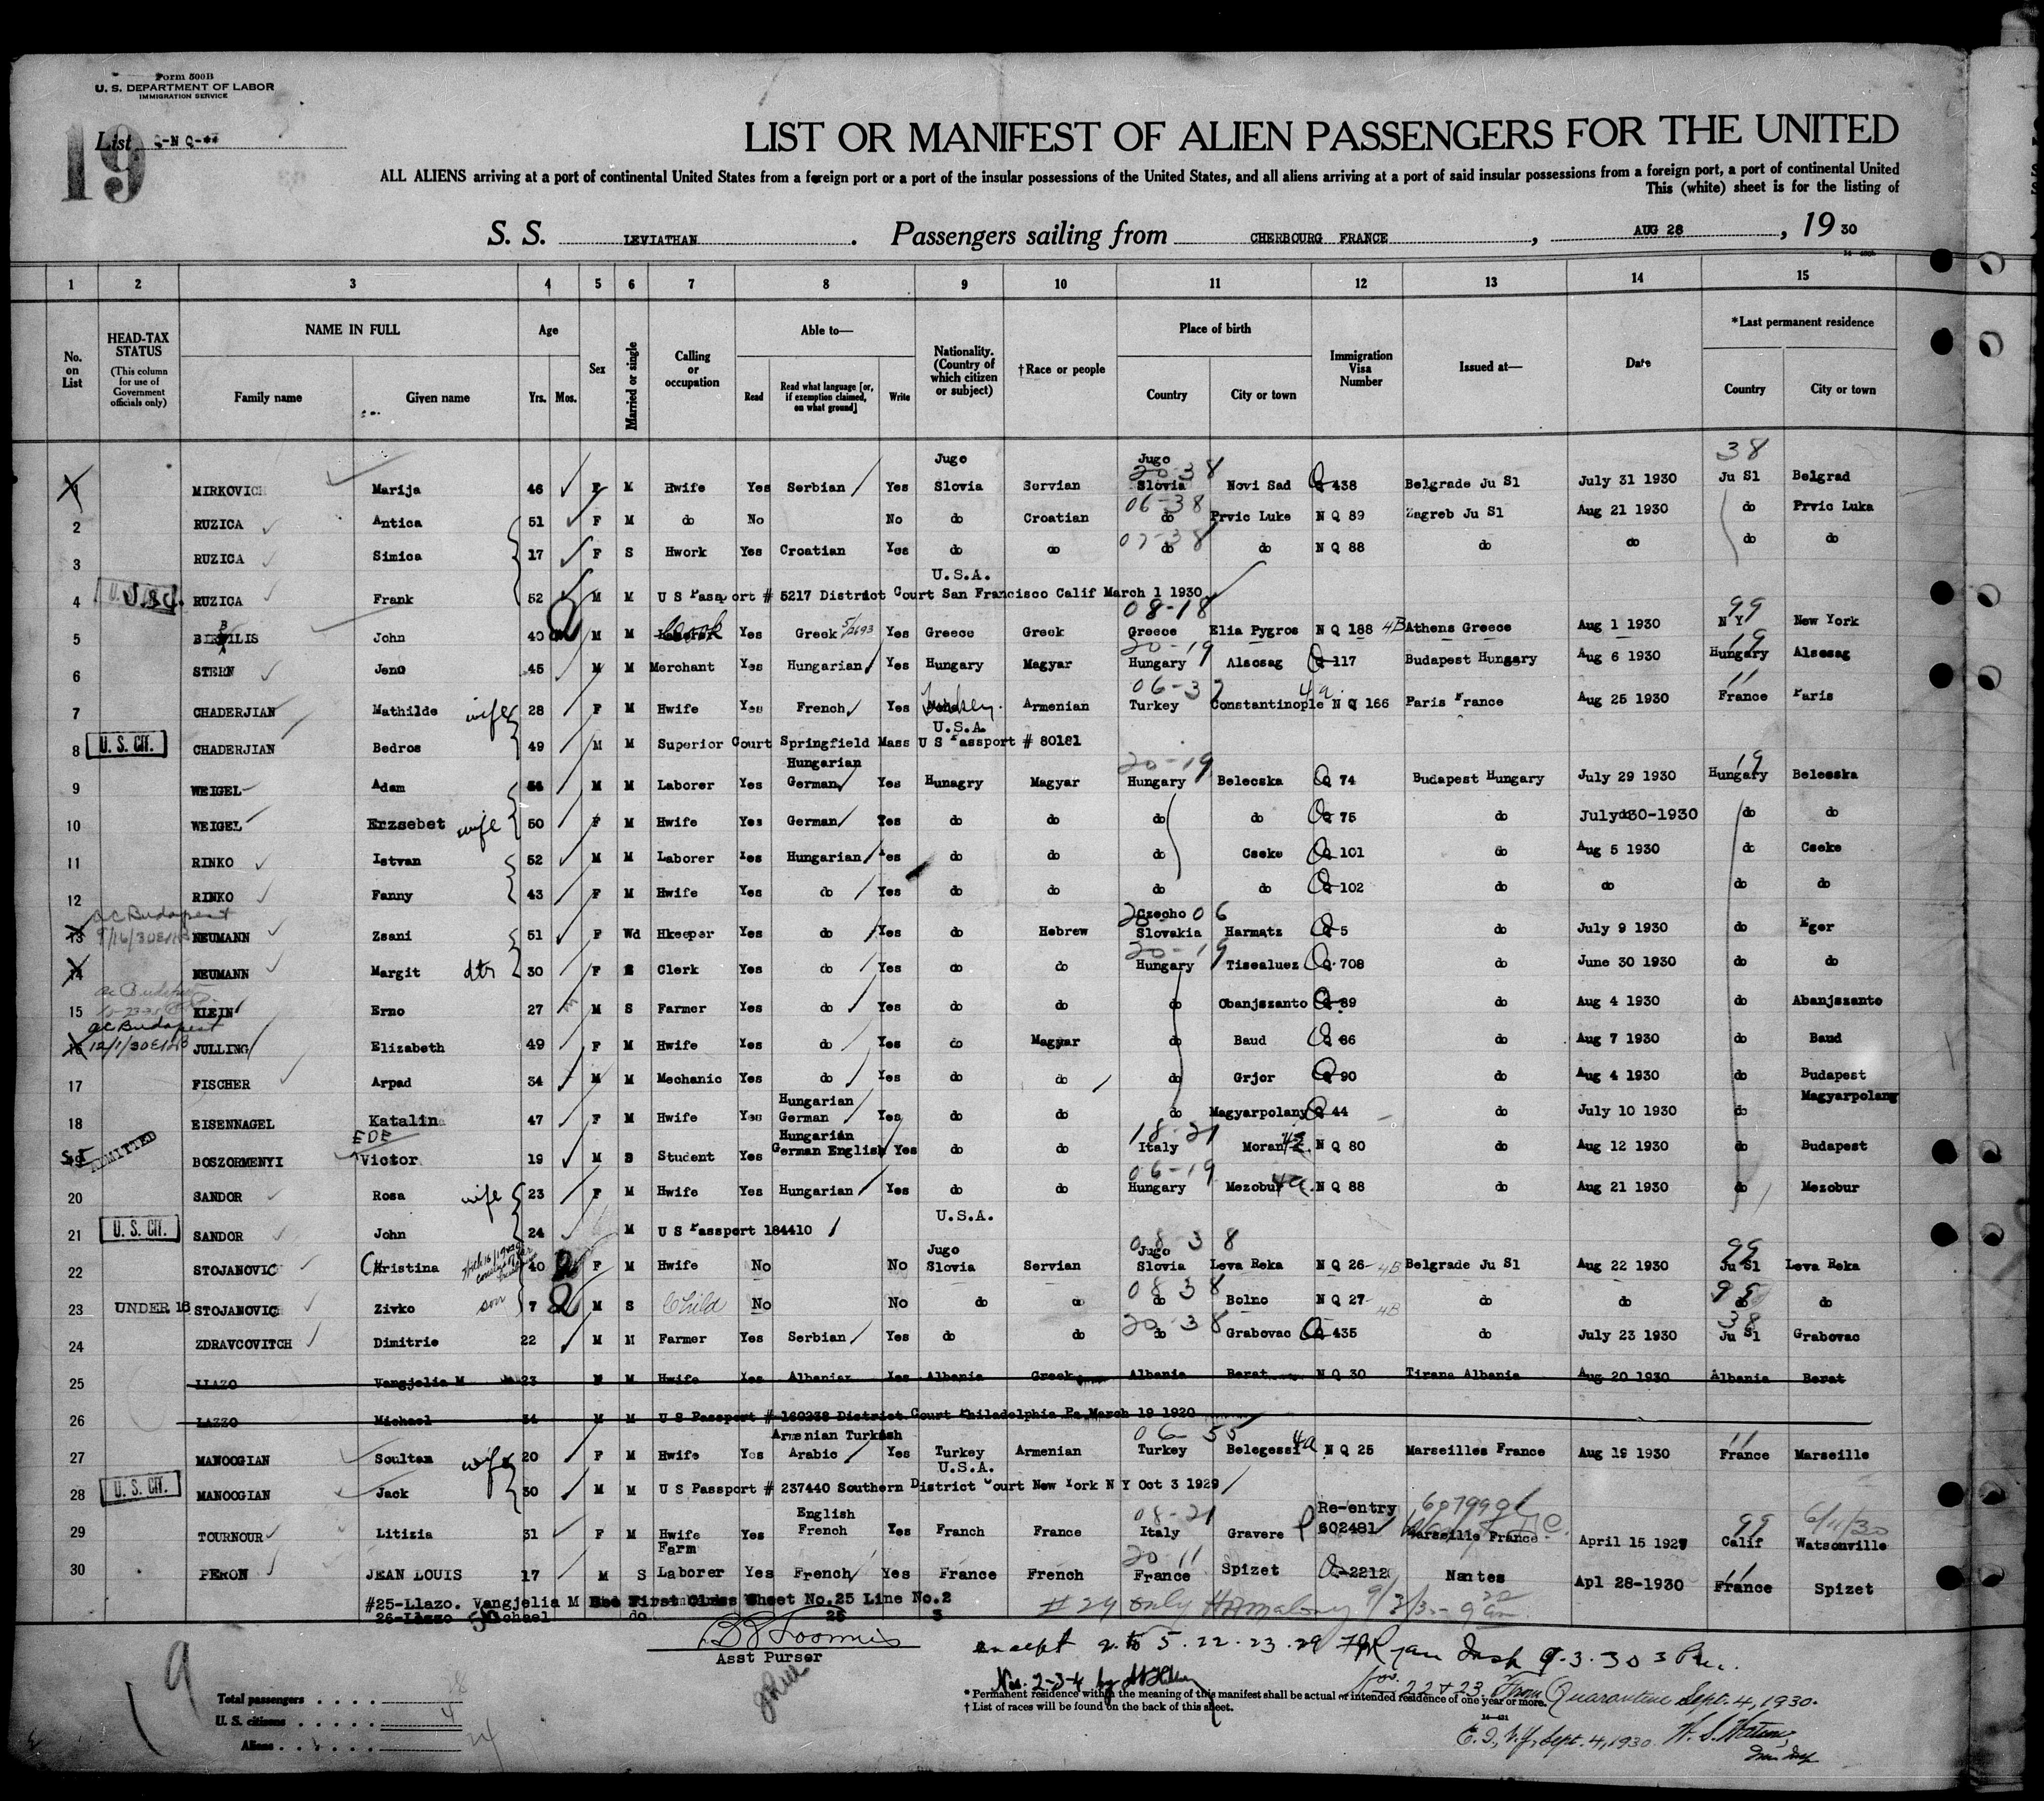 Form 500B
U. S. DEPARTMENT OF LABOR
IMMIGRATION SERVICE
19
List Q-N Q-**
LIST OR MANIFEST OF ALIEN PASSENGERS FOR THE UNITED
ALL ALIENS arriving at a port of continental United States from a foreign port or a port of the insular possessions of the United States, and all aliens arriving at a port of said insular possessions from a foreign port, a port of continental United
This (white) sheet is for the listing of
S. S. LEVIATHAN . Passengers sailing from CHERBOURG FRANCE , AUG 28 , 19 30
1 2 3 4 5 6 7 8 9 10 11 12 13 14 15
No. on List
HEAD-TAX STATUS (This column for use of Government officials only)
NAME IN FULL Family name Given name
Age Yrs. Mos.
Sex
Married or single
Calling or occupation
Able to— Read Read what language [or, if exemption claimed, on what ground] Write
Nationality. (Country of which citizen or subject)
†Race or people
Place of birth Country City or town
Immigration Visa Number
Issued at—
Date
*Last permanent residence Country City or town
1 MIRKOVICH Marija 46 F M Hwife Yes Serbian Yes Jugo Slovia Servian Jugo Slovia 20-38 Novi Sad Q 438 Belgrade Ju Sl July 31 1930 38 Ju Sl Belgrad
2 RUZICA Antica 51 F M do No No do Croatian 06-38 do Prvic Luke N Q 89 Zagreb Ju Sl Aug 21 1930 do Prvic Luka
3 RUZICA Simica 17 F S Hwork Yes Croatian Yes do do do do N Q 88 do do do do
4 U.S.C. RUZICA Frank 52 M M U S Passport # 5217 District Court San Francisco Calif March 1 1930 U.S.A.
5 John 40 M M Cook Yes Greek Yes Greece Greek 08-18 Greece Elia Pygros N Q 188 4B Athens Greece Aug 1 1930 99 N Y New York
6 STERN Jeno 45 M M Merchant Yes Hungarian Yes Hungary Magyar 20-19 Hungary Alsosag Q 117 Budapest Hungary Aug 6 1930 19 Hungary Alsosag
7 CHADERJIAN Mathilde wife 28 F M Hwife Yes French Yes Turkey Armenian Turkey Constantinople N Q 166 Paris France Aug 25 1930 11 France Paris
8 U. S. CIT. CHADERJIAN Bedros 49 M M Superior Court Springfield Mass U S Passport # 80181 U.S.A.
9 WEIGEL Adam M M Laborer Yes Hungarian German Yes Hunagry Magyar 20-19 Hungary Belecska Q 74 Budapest Hungary July 29 1930 19 Hungary Belecska
10 WEIGEL Erzsebet wife 50 F M Hwife Yes German Yes do do do do Q 75 do July 30-1930 do do
11 RINKO Istvan 52 M M Laborer Yes Hungarian Yes do do do Cseke Q 101 do Aug 5 1930 do Cseke
12 RINKO Fanny 43 F M Hwife Yes do Yes do do do do Q 102 do do do do
13 ac Budapest 9/16/30 NEUMANN Zsani 51 F Wd Hkeeper Yes do Yes do Hebrew Czecho Slovakia 20 06 Harmatz Q 5 do July 9 1930 do Eger
14 NEUMANN Margit dtr 30 F S Clerk Yes do Yes do do 20-19 Hungary Tiszaluez Q 708 do June 30 1930 do do
15 KLEIN Erno 27 M S Farmer Yes do Yes do do do Obanjszanto Q 89 do Aug 4 1930 do Abanjszanto
16 ac Budapest 12/1/30 JULLING Elizabeth 49 F M Hwife Yes do Yes do Magyar do Baud Q 86 do Aug 7 1930 do Baud
17 FISCHER Arpad 34 M M Mechanic Yes do Yes do do do Grjor Q 90 do Aug 4 1930 do Budapest
18 EISENNAGEL Katalin 47 F M Hwife Yes Hungarian German Yes do do do Magyarpolany Q 44 do July 10 1930 do Magyarpolany
19 S.I. ADMITTED BOSZORMENYI EDE Victor 19 M S Student Yes Hungarian German English Yes do do 18-21 Italy Moran N Q 80 do Aug 12 1930 do Budapest
20 SANDOR Rosa wife 23 F M Hwife Yes Hungarian Yes do do 06-19 Hungary Mezobur N Q 88 do Aug 21 1930 do Mezobur
21 U. S. CIT. SANDOR John 24 M U S Passport 184410 U.S.A.
22 STOJANOVIC Christina 40 F M Hwife No No Jugo Slovia Servian 08 38 Jugo Slovia Leva Reka N Q 26 4B Belgrade Ju Sl Aug 22 1930 99 Ju Sl Leva Reka
23 UNDER 16 STOJANOVIC Zivko son 7 M S Child No No do do 08 38 do Bolno N Q 27 4B do do do do
24 ZDRAVCOVITCH Dimitrie 22 M M Farmer Yes Serbian Yes do do 20-38 do Grabovac Q 435 do July 23 1930 38 Ju Sl Grabovac
25 LLAZO Vangjelia M 23 F M Hwife Yes Albanian Yes Albania Greek Albania Berat N Q 30 Tirana Albania Aug 20 1930 Albania Berat
26 LAZZO Michael 34 M M U S Passport # 160238 District Court Philadelphia Pa March 19 1920
27 MANOOGIAN Soultan wife 20 F M Hwife Yes Armenian Turkish Arabic Yes Turkey Armenian 06 55 Turkey Belegessi 4a N Q 25 Marseilles France Aug 19 1930 11 France Marseille
28 U. S. CIT. MANOOGIAN Jack 30 M M U S Passport # 237440 Southern District Court New York N Y Oct 3 1929 U.S.A.
29 TOURNOUR Litizia 31 F M Hwife Yes English French Yes Franch France 08-21 Italy Gravere Re-entry 602481 Marseille France April 15 1927 99 Calif 6/11/30 Watsonville
30 PERON JEAN LOUIS 17 M S Farm Laborer Yes French Yes France French 20 11 France Spizet Q-2212 Nantes Apl 28-1930 11 France Spizet
#25-Llazo. Vangjelia M See First Class Sheet No.25 Line No.2
26-Llazo Michael do 25 3
# 29 only
B Loomis
Asst Purser
except 2 to 5. 22. 23. 29
Nos. 2-3-4 by
Nos. 22 & 23. From Quarantine Sept. 4, 1930.
* Permanent residence within the meaning of this manifest shall be actual or intended residence of one year or more.
† List of races will be found on the back of this sheet.
E. I., N.J., Sept. 4, 1930.
9
Total passengers . . . .
U. S. citizens . . . . . 4
Aliens . . . . . . 24